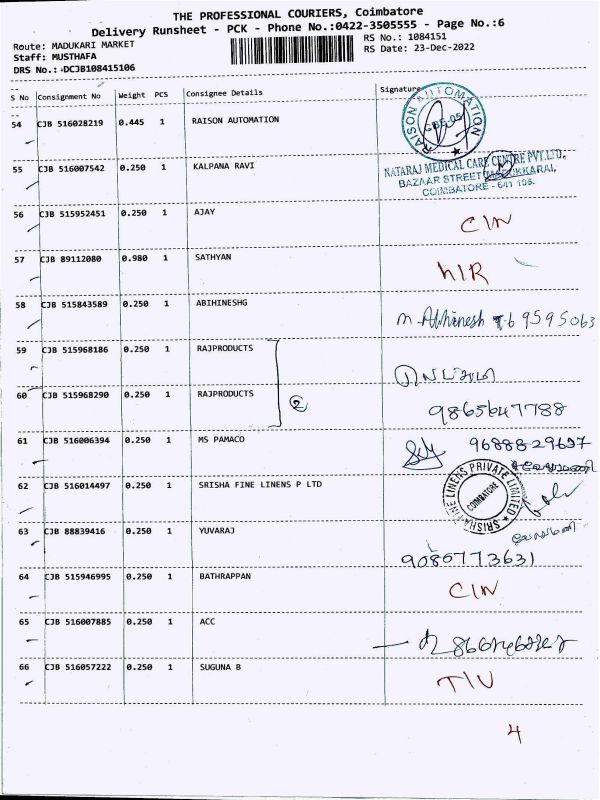 THE PROFESSIONAL COURIERS, Coimbatore
Delivery Runsheet - PCK - Phone No.:0422-3505555 - Page No.:6
Route: MADUKARI MARKET
RS No.: 1084151
Staff: MUSTHAFA
RS Date: 23-Dec-2022
DRS No.: DCJB108415106
S No Consignment No Weight PCS Consignee Details Signature
54 CJB 516028219 0.445 1 RAISON AUTOMATION
RAISON AUTOMATION CBE-05
55 CJB 516007542 0.250 1 KALPANA RAVI
NATARAJ MEDICAL CARE CENTRE PVT.LTD.
BAZAAR STREET
COIMBATORE - 641 105.
56 CJB 515952451 0.250 1 AJAY
CIN
57 CJB 89112080 0.980 1 SATHYAN
hIR
58 CJB 515843589 0.250 1 ABIHINESHG
59 CJB 515968186 0.250 1 RAJPRODUCTS
60 CJB 515968290 0.250 1 RAJPRODUCTS
2
9865647788
61 CJB 516006394 0.250 1 MS PAMACO
62 CJB 516014497 0.250 1 SRISHA FINE LINENS P LTD
SRISHA FINE LINENS PRIVATE LIMITED COIMBATORE
63 CJB 88839416 0.250 1 YUVARAJ
9080773631
64 CJB 515946995 0.250 1 BATHRAPPAN
CIN
65 CJB 516007885 0.250 1 ACC
66 CJB 516057222 0.250 1 SUGUNA B
T/U
4